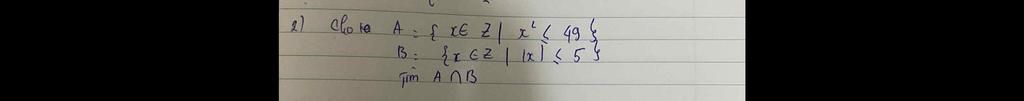 2) Cho A = { x ∈ Z | x² ≤ 49 }
B = { x ∈ Z | |x| ≤ 5 }
Tìm A ∩ B